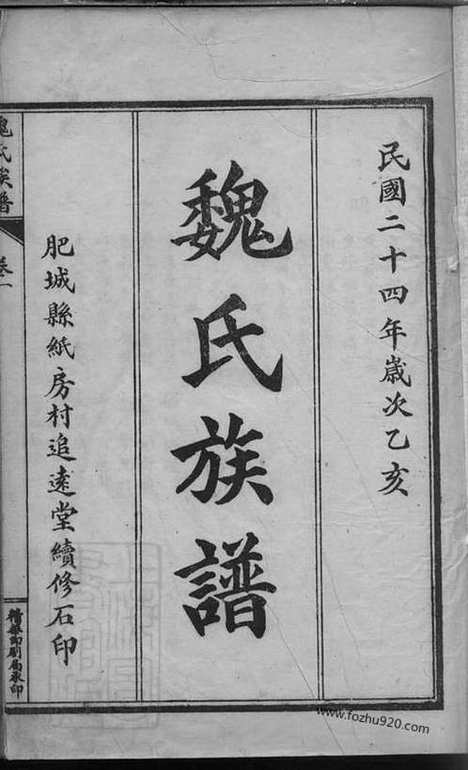 民國二十四年歲次乙亥
魏氏族譜
肥城縣紙房村追遠堂續修石印
魏氏族譜
卷一
印刷局承印
www.fozhu920.com